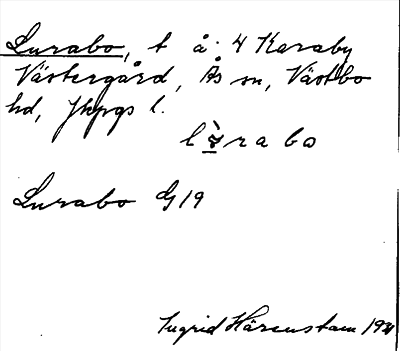 Lurabo, t å. 4 Karaby
Västergård, Ås sn, Västbo
hd, Jkpgs l.
rabo
Lurabo G19
Ingrid Härenstam